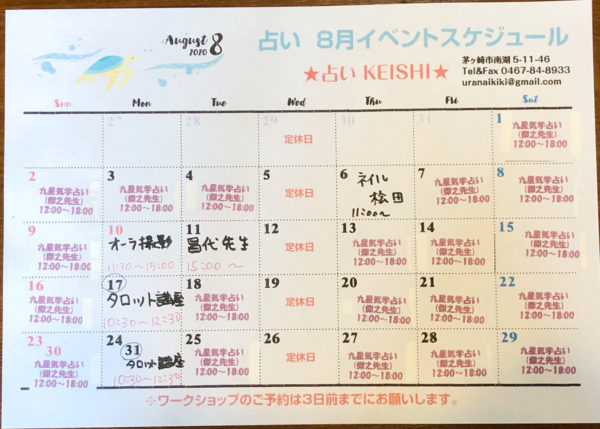 August 8
2020
占い 8月イベントスケジュール
★占い KEISHI★
茅ヶ崎市南湖 5-11-46
Tel&Fax 0467-84-8933
uranaikiki@gmail.com
Sun Mon Tue Wed Thu Fri Sat
27 28 定休日 30 31 1
九星気学占い
(傑之先生)
12:00~18:00
2 3 4 5 6 7 8
九星気学占い 九星気学占い 九星気学占い 定休日 ネイル 九星気学占い 九星気学占い
(傑之先生) (傑之先生) (傑之先生) 松田 (傑之先生) (傑之先生)
12:00~18:00 12:00~18:00 12:00~18:00 11:00~ 12:00~18:00 12:00~18:00
9 10 11 12 13 14 15
九星気学占い オーラ撮影 昌代先生 定休日 九星気学占い 九星気学占い 九星気学占い
(傑之先生) (傑之先生) (傑之先生) (傑之先生)
12:00~18:00 11:30~15:00 15:00~ 12:00~18:00 12:00~18:00 12:00~18:00
16 17 18 19 20 21 22
九星気学占い タロット講座 九星気学占い 定休日 九星気学占い 九星気学占い 九星気学占い
(傑之先生) (傑之先生) (傑之先生) (傑之先生) (傑之先生)
12:00~18:00 10:30~12:30 12:00~18:00 12:00~18:00 12:00~18:00 12:00~18:00
23 30 24 31 25 26 27 28 29
九星気学占い タロット講座 九星気学占い 定休日 九星気学占い 九星気学占い 九星気学占い
(傑之先生) (傑之先生) (傑之先生) (傑之先生) (傑之先生)
12:00~18:00 10:30~12:30 12:00~18:00 12:00~18:00 12:00~18:00 12:00~18:00
※ワークショップのご予約は3日前までにお願いします。